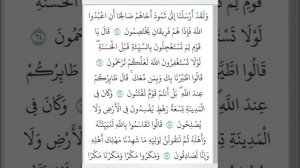 وَلَقَدْ أَرْسَلْنَا إِلَىٰ ثَمُودَ أَخَاهُمْ صَالِحًا أَنِ اعْبُدُوا
اللَّهَ فَإِذَا هُمْ فَرِيقَانِ يَخْتَصِمُونَ قَالَ يَا
قَوْمِ لِمَ تَسْتَعْجِلُونَ بِالسَّيِّئَةِ قَبْلَ الْحَسَنَةِ
لَوْلَا تَسْتَغْفِرُونَ اللَّهَ لَعَلَّكُمْ تُرْحَمُونَ
قَالُوا اطَّيَّرْنَا بِكَ وَبِمَنْ مَعَكَ قَالَ طَائِرُكُمْ
عِنْدَ اللَّهِ بَلْ أَنْتُمْ قَوْمٌ تُفْتَنُونَ وَكَانَ فِي
الْمَدِينَةِ تِسْعَةُ رَهْطٍ يُفْسِدُونَ فِي الْأَرْضِ وَلَا
يُصْلِحُونَ قَالُوا تَقَاسَمُوا بِاللَّهِ لَنُبَيِّتَنَّهُ
وَأَهْلَهُ ثُمَّ لَنَقُولَنَّ لِوَلِيِّهِ مَا شَهِدْنَا مَهْلِكَ أَهْلِهِ
وَإِنَّا لَصَادِقُونَ وَمَكَرُوا مَكْرًا وَمَكَرْنَا مَكْرًا